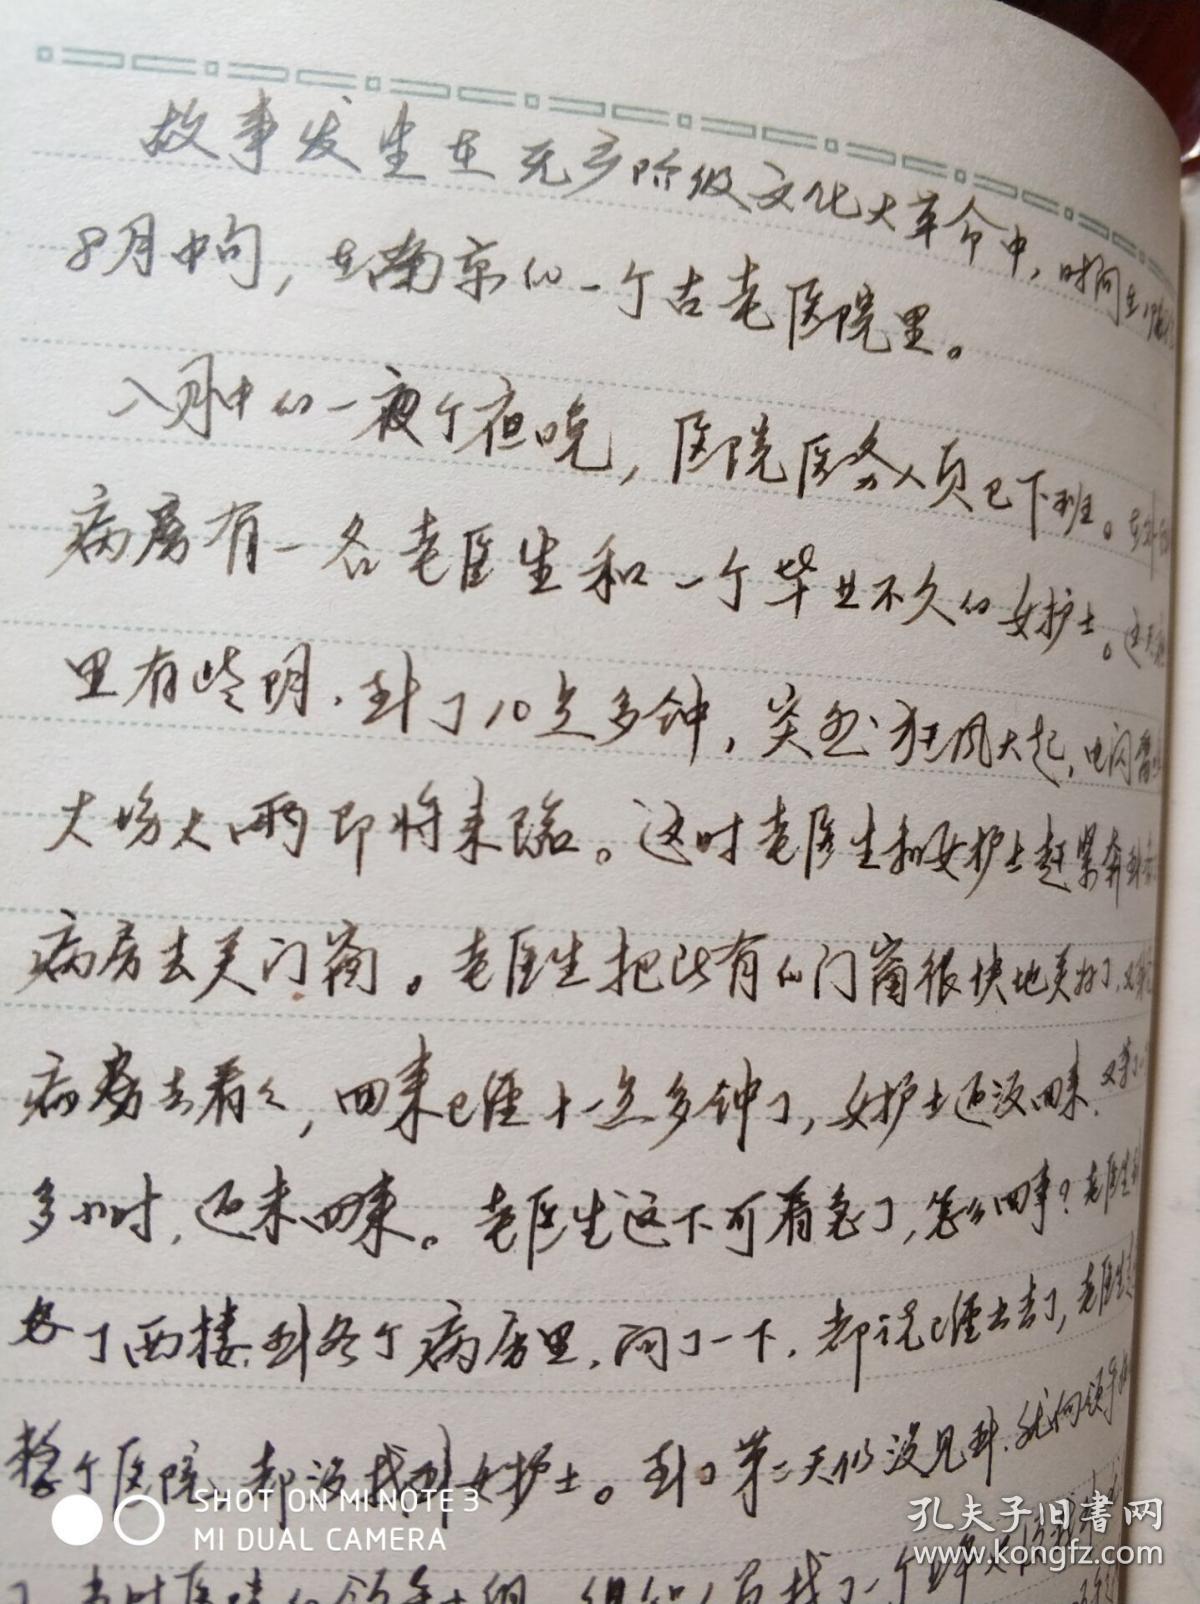 故事发生在无产阶级文化大革命中，时间在
8月中旬，在南京的一个古老医院里。
八月中的一夜个夜晚，医院医务人员已下班。在
病房有一名老医生和一个毕业不久的女护士。这天
里有些明．到了10点多钟，突然狂风大起，电闪雷
大场大雨即将来临。这时老医生和女护士赶紧奔到
病房去关门窗。老医生把所有的门窗很快地关好了，又
病房去看看，回来已经十一点多钟了，女护士还没回来．又等了
多小时，还未回来。老医生这下可着急了，怎么回事？老医生
了西楼，到各个病房里，问了一下．都说已经出去了，老医生
整个医院，都没找到女护士。到了第二天仍没见到．就向领导
了，当时医院的领导 组织人员找了一个
SHOT ON MI NOTE 3
MI DUAL CAMERA
孔夫子旧书网
www.kongfz.com